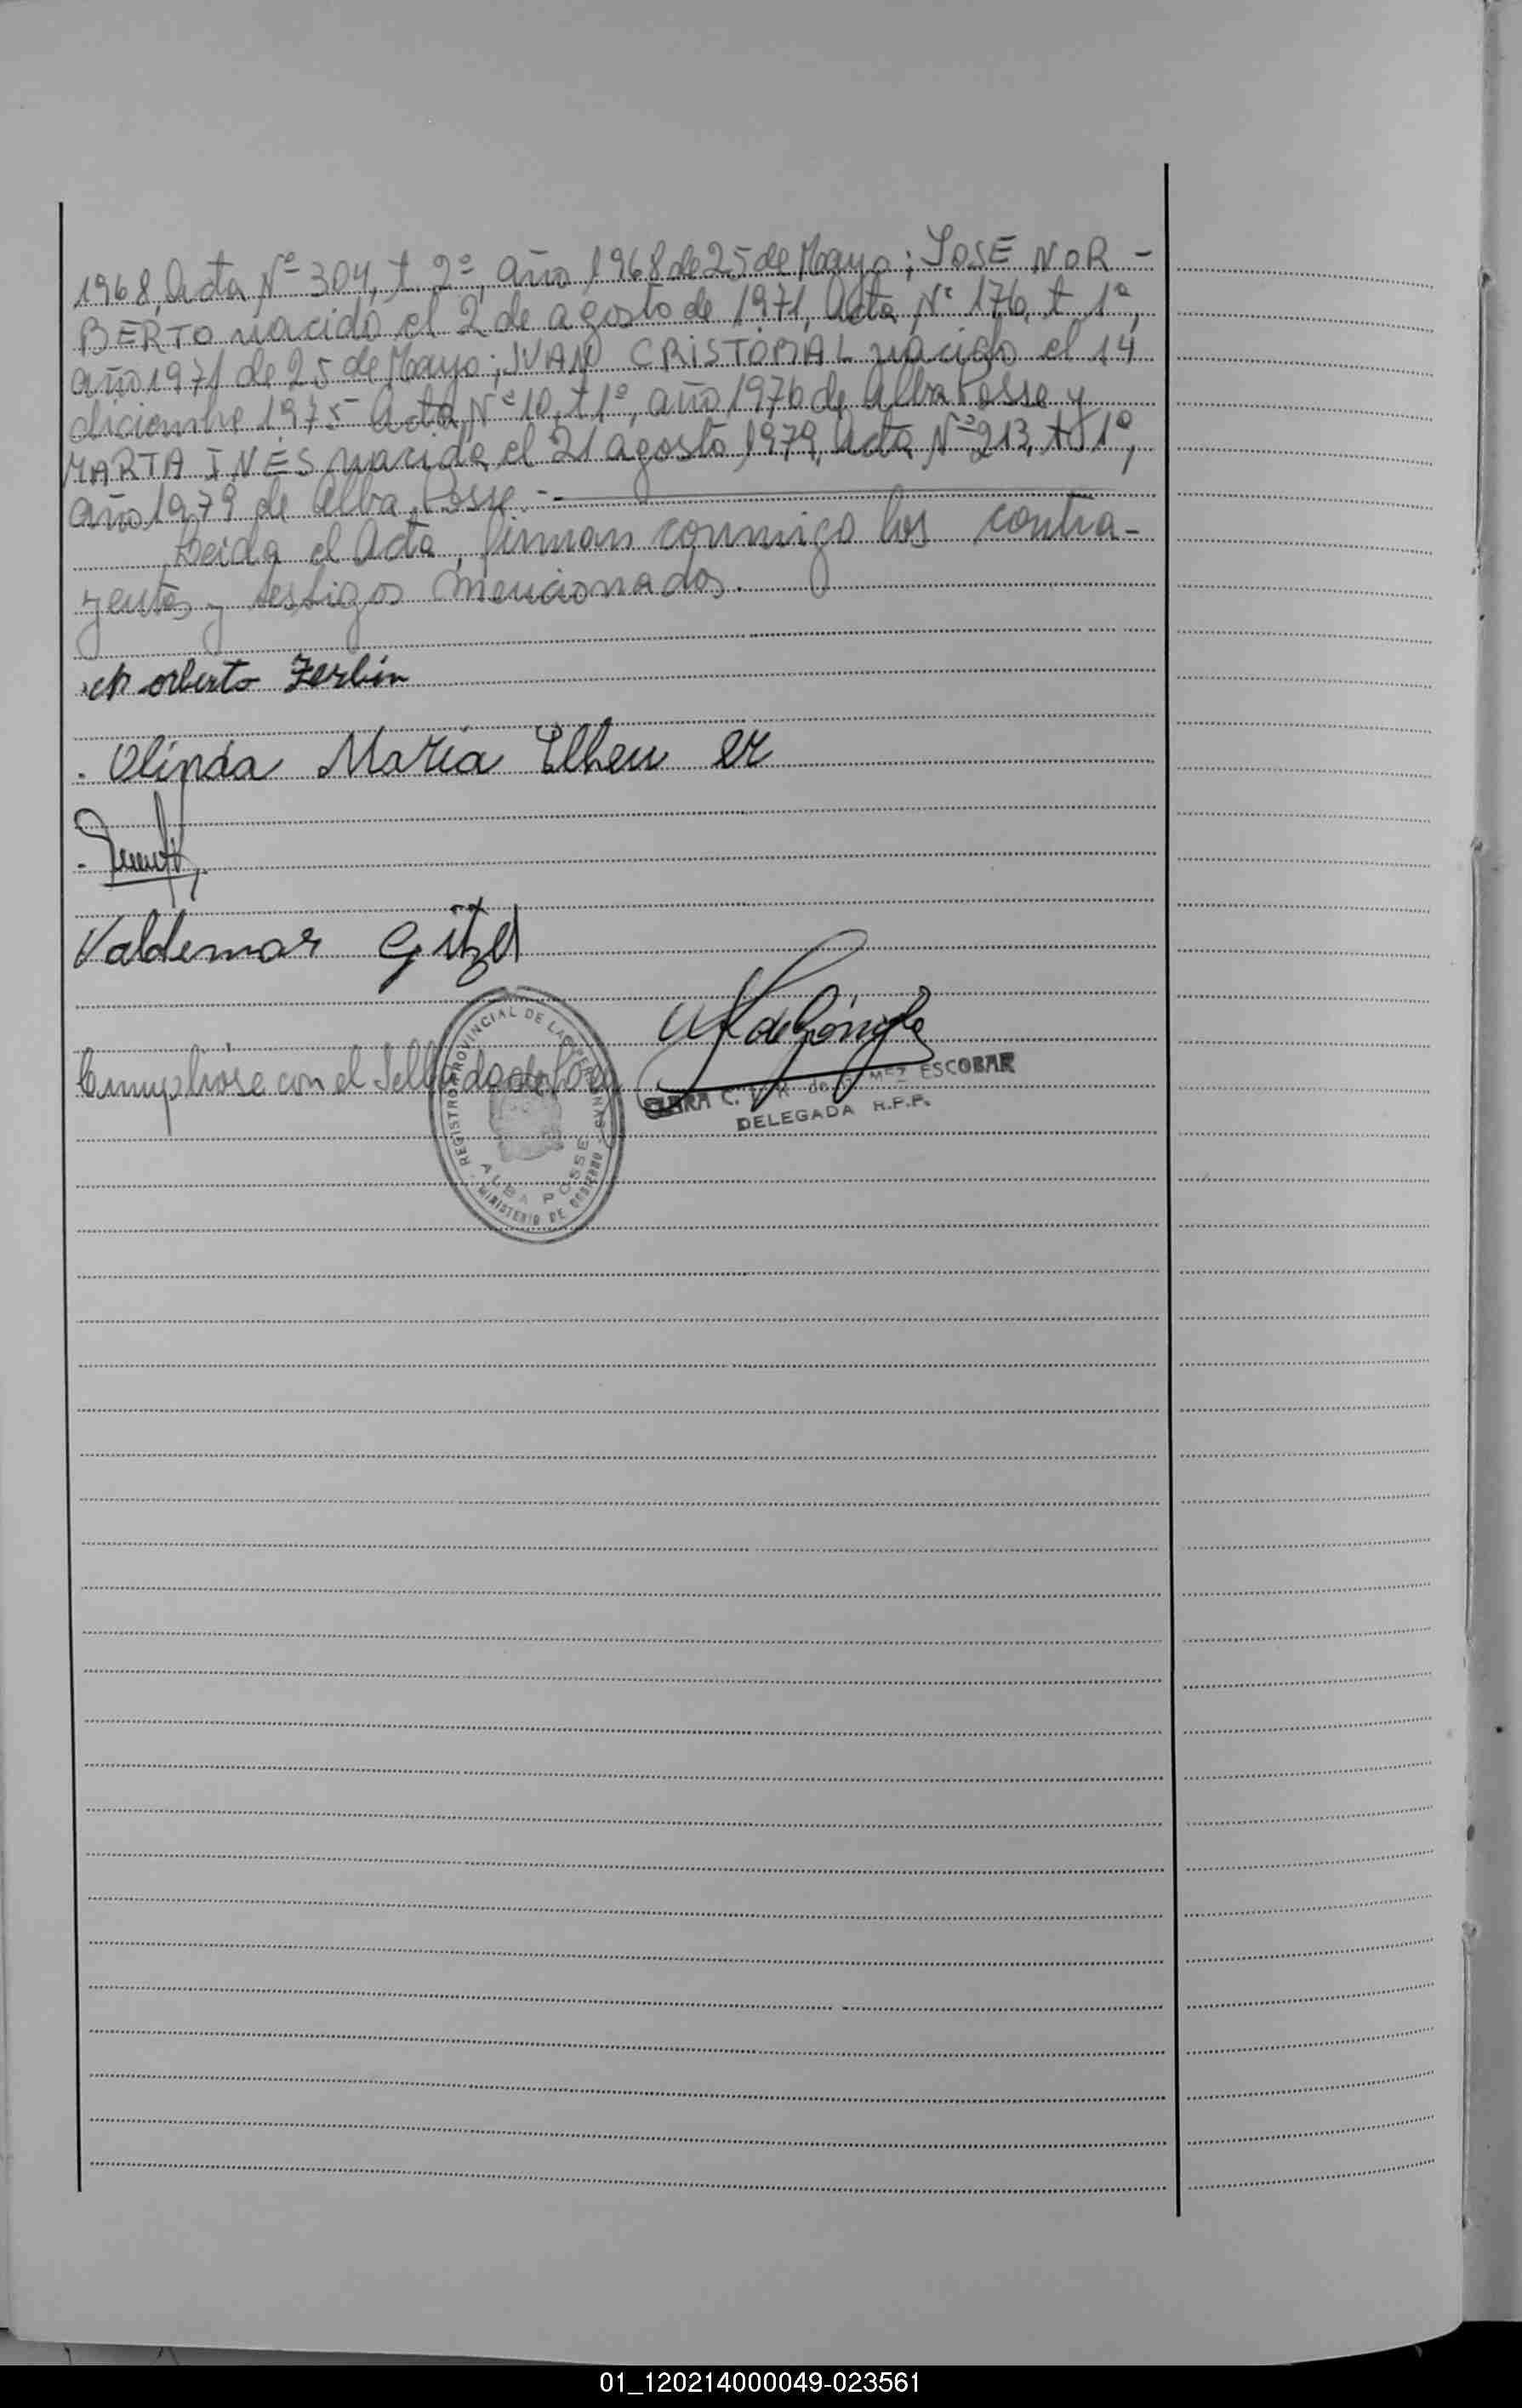 1968, Acta Nº 304, t. 2º, año 1968 de 25 de Mayo; JOSE NOR-
BERTO nacido el 2 de agosto de 1971, Acta Nº 176, t 1º,
año 1971 de 25 de Mayo; JUAN CRISTOBAL nacido el 14
diciembre 1975 Acta Nº 10, t 1º, año 1976 de Alba Posse y
MARTA INES nacida el 21 agosto 1979, Acta Nº 213, tº 1º,
año 1979 de Alba Posse.-
Leida el Acta, firman conmigo los contra-
yentes y testigos mencionados.
Norberto Zerbin
Olinda María
Valdemar Gitzel
Cumplióse con el Sellado de
REGISTRO PROVINCIAL DE LAS PERSONAS
ALBA POSSE
MINISTERIO DE GOBIERNO
ESCOBAR
DELEGADA R.P.P.
01_120214000049-023561